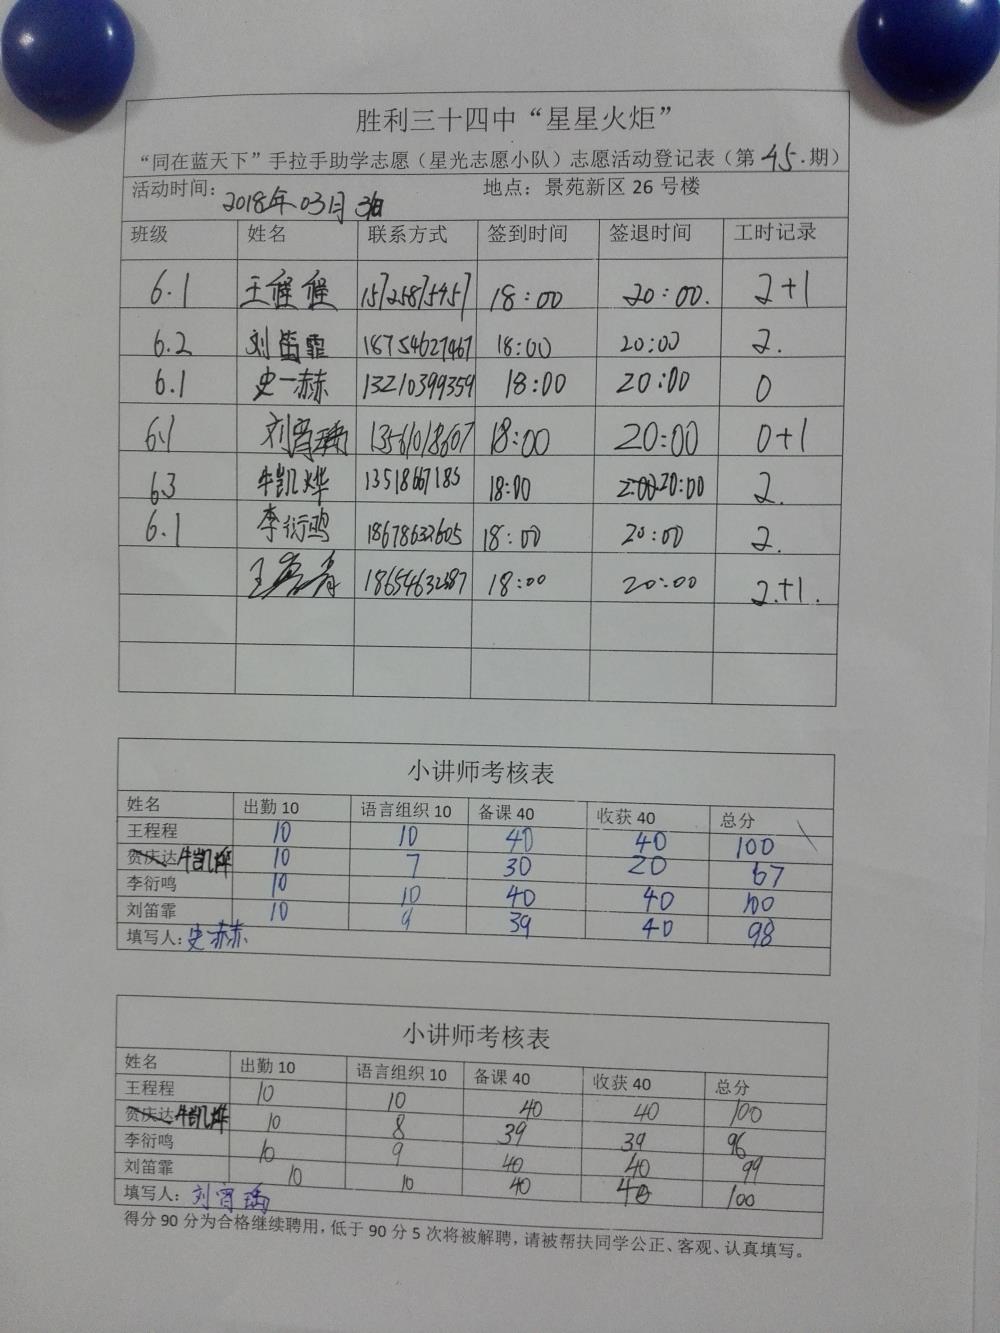 胜利三十四中“星星火炬”
“同在蓝天下”手拉手助学志愿（星光志愿小队）志愿活动登记表（第45.期）
活动时间：2018年03月31日 地点：景苑新区26号楼
班级 姓名 联系方式 签到时间 签退时间 工时记录
6.1 王程程 15725875457 18:00 20:00. 2+1
6.2 刘笛霏 18754627467 18:00 20:00 2.
6.1 史一赫 13210399359 18:00 20:00 0
6.1 刘宵瑀 13561018607 18:00 20:00 0+1
6.3 牛凯烨 13518667183 18:00 20:00 2.
6.1 李衍鸣 18678632605 18:00 20:00 2.
18654632387 18:00 20:00 2.+1.
小讲师考核表
姓名 出勤10 语言组织10 备课40 收获40 总分
王程程 10 10 40 40 100
贺庆达 牛凯烨 10 7 30 20 67
李衍鸣 10 10 40 40 100
刘笛霏 10 9 39 40 98
填写人：史赫
小讲师考核表
姓名 出勤10 语言组织10 备课40 收获40 总分
王程程 10 10 40 40 100
贺庆达 牛凯烨 10 8 39 39 96
李衍鸣 10 9 40 40 99
刘笛霏 10 10 40 40 100
填写人：刘宵瑀
得分90分为合格继续聘用，低于90分5次将被解聘，请被帮扶同学公正、客观、认真填写。